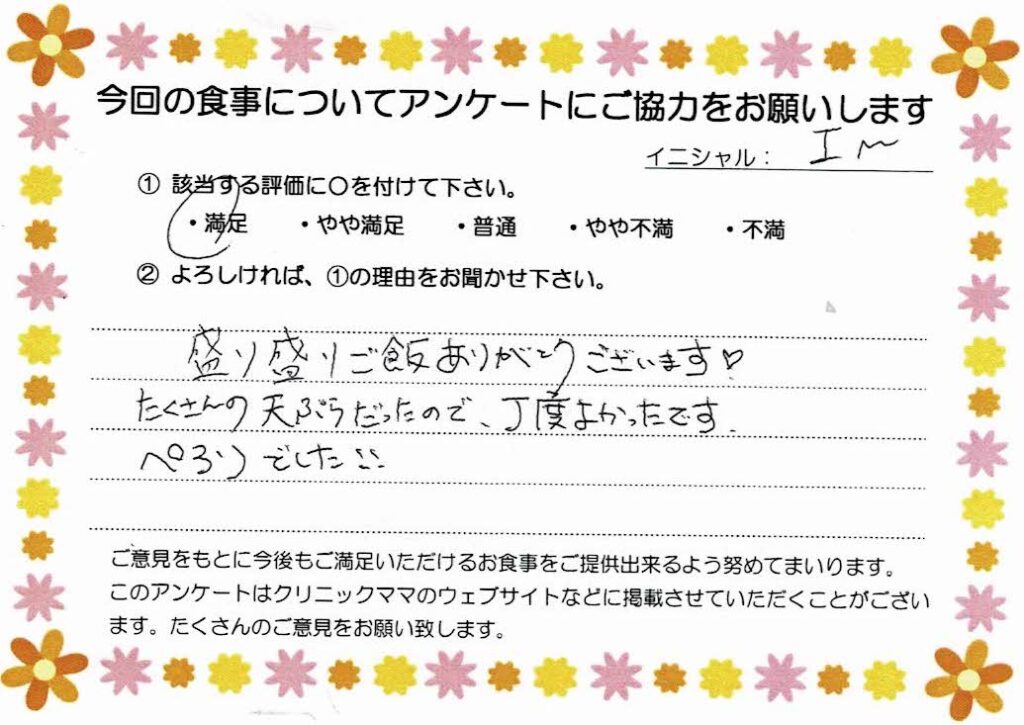 今回の食事についてアンケートにご協力をお願いします
イニシャル： I M
① 該当する評価に〇を付けて下さい。
・満足 ・やや満足 ・普通 ・やや不満 ・不満
② よろしければ、①の理由をお聞かせ下さい。
盛り盛りご飯ありがとうございます♡
たくさんの天ぷらだったので、丁度よかったです.
ぺろりでした!!
ご意見をもとに今後もご満足いただけるお食事をご提供出来るよう努めてまいります。
このアンケートはクリニックママのウェブサイトなどに掲載させていただくことがござい
ます。たくさんのご意見をお願い致します。